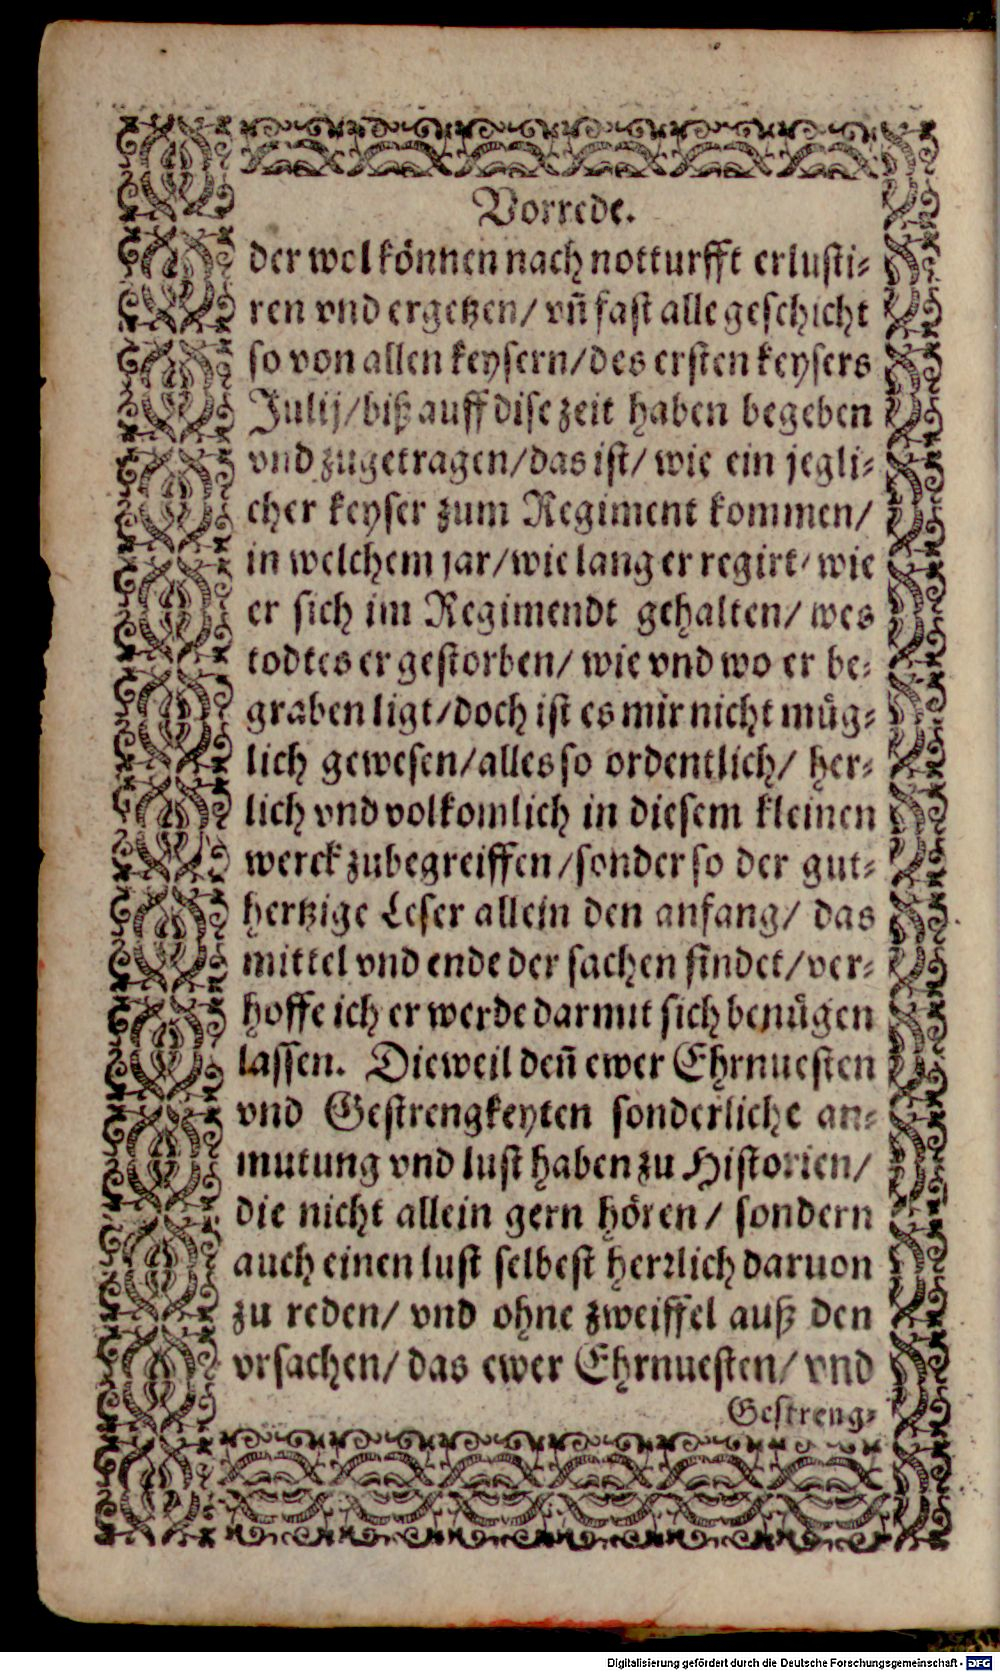 Vorrede.
der wol können nach notturfft erlusti⸗
ren vnd ergetzen/ vn̄ fast alle geschicht
so von allen keysern/des ersten keysers
Julij/biß auff dise zeit haben begeben
vnd zugetragen/das ist/ wie ein jegli⸗
cher keyser zum Regiment kommen/
in welchem jar/wie lang er regirt/ wie
er sich im Regimendt gehalten/ wes
todtes er gestorben/ wie vnd wo er be⸗
graben ligt/doch ist es mir nicht müg⸗
lich gewesen/alles so ordentlich/ her⸗
lich vnd volkomlich in diesem kleinen
werck zubegreiffen/sonder so der gut⸗
hertzige Leser allein den anfang/ das
mittel vnd ende der sachen findet/ver⸗
hoffe ich er werde darmit sich benügen
lassen. Dieweil den̄ ewer Ehrnuesten
vnd Gestrengkeyten sonderliche an⸗
mutung vnd lust haben zu Historien/
die nicht allein gern hören/ sondern
auch einen lust selbest herꝛlich daruon
zu reden/ vnd ohne zweiffel auß den
vrsachen/ das ewer Ehrnuesten/ vnd
Gestreng⸗
Digitalisierung gefördert durch die Deutsche Forschungsgemeinschaft - DFG